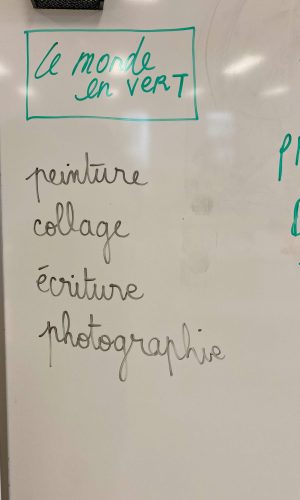 Le monde
en VERT
peinture
collage
écriture
photographie